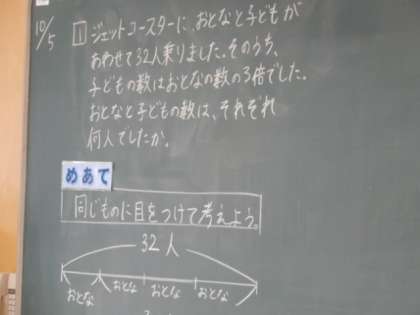 10/5
1 ジェットコースターに、おとなと子どもが
あわせて32人乗りました。そのうち、
子どもの数はおとなの数の3倍でした。
おとなと子どもの数は、それぞれ
何人でしたか。
めあて
同じものに目をつけて考えよう。
32人
おとな おとな おとな おとな